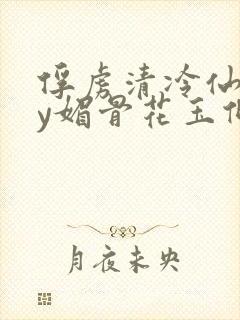 俘虏清冷仙
y媚骨花玉
月夜未央